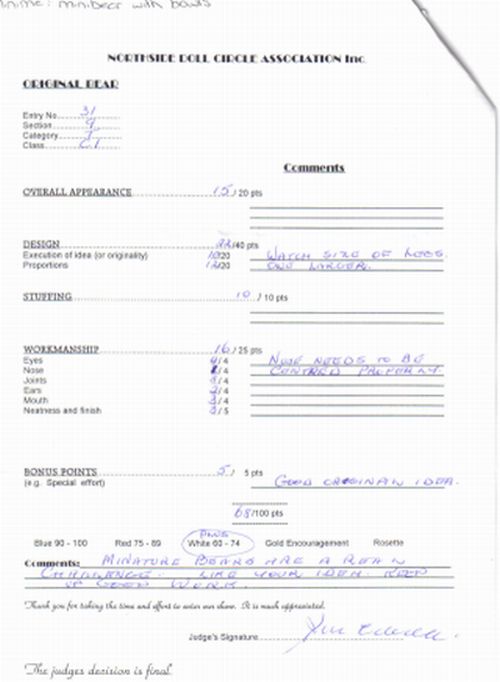 mini bear with bows
NORTHSIDE DOLL CIRCLE ASSOCIATION Inc
ORIGINAL BEAR
Entry No. 31
Section 9
Category
Class
Comments
OVERALL APPEARANCE 15 / 20 pts
DESIGN 22/40 pts
Execution of idea (or originality) 10/20 WATCH SIZE OF LEGS.
Proportions 12/20 ONE LARGER.
STUFFING 10 / 10 pts
WORKMANSHIP 16 / 25 pts
Eyes /4 NOSE NEEDS TO BE
Nose /4 CENTRED PROPERLY
Joints /4
Ears /4
Mouth /4
Neatness and finish /5
BONUS POINTS 5 / 5 pts
(e.g. Special effort) GOOD ORIGINAL IDEA.
68/100 pts
Blue 90 - 100 Red 75 - 89 White 60 - 74 Gold Encouragement Rosette
Comments: MINATURE BEARS ARE A REAL
CHALLENGE. LIKE YOUR IDEA. KEEP
UP GOOD WORK.
Thank you for taking the time and effort to enter our show. It is much appreciated.
Judge's Signature
The judges decision is final